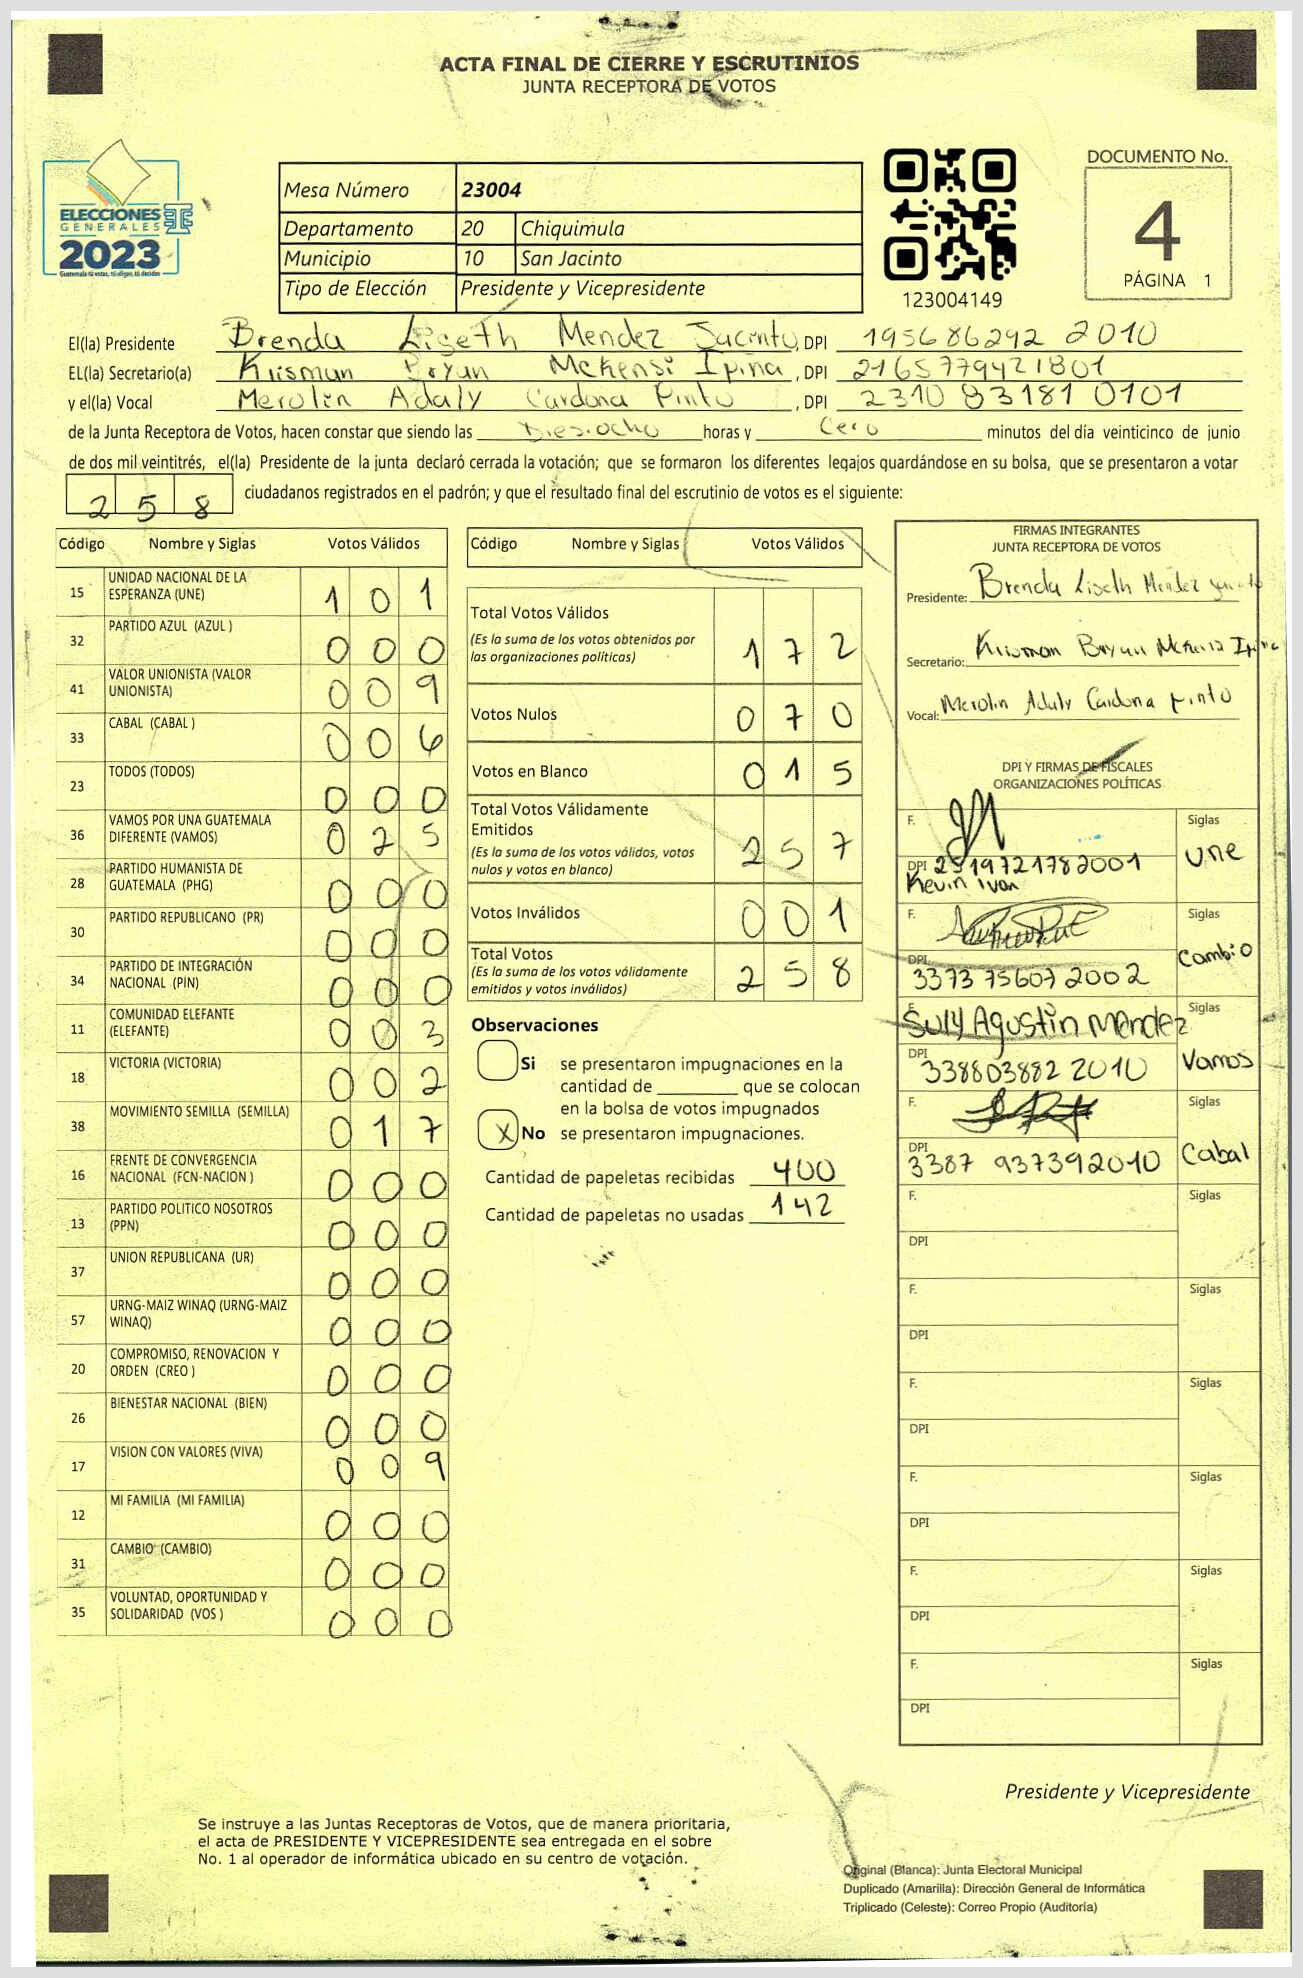 ACTA FINAL DE CIERRE Y ESCRUTINIOS
JUNTA RECEPTORA DE VOTOS
ELECCIONES
GENERALES
2023
Guatemala tú votas, tú eliges, tú decides
Mesa Número 23004
Departamento 20 Chiquimula
Municipio 10 San Jacinto
Tipo de Elección Presidente y Vicepresidente
123004149
DOCUMENTO No.
4
PÁGINA 1
El(la) Presidente Brenda Liseth Mendez Jacinto, DPI 195686292 2010
EL(la) Secretario(a) Krisman Bryan McKensi Ipiña, DPI 2165779421801
y el(la) Vocal Merolin Adaly Cardona Pinto, DPI 2310 83181 0101
de la Junta Receptora de Votos, hacen constar que siendo las Diesiocho horas y Cero minutos del día veinticinco de junio
de dos mil veintitrés, el(la) Presidente de la junta declaró cerrada la votación; que se formaron los diferentes legajos quardándose en su bolsa, que se presentaron a votar
258 ciudadanos registrados en el padrón; y que el resultado final del escrutinio de votos es el siguiente:
Código Nombre y Siglas Votos Válidos
15 UNIDAD NACIONAL DE LA ESPERANZA (UNE) 1 0 1
32 PARTIDO AZUL (AZUL ) 0 0 0
41 VALOR UNIONISTA (VALOR UNIONISTA) 0 0 9
33 CABAL (CABAL ) 0 0 6
23 TODOS (TODOS) 0 0 0
36 VAMOS POR UNA GUATEMALA DIFERENTE (VAMOS) 0 2 5
28 PARTIDO HUMANISTA DE GUATEMALA (PHG) 0 0 0
30 PARTIDO REPUBLICANO (PR) 0 0 0
34 PARTIDO DE INTEGRACIÓN NACIONAL (PIN) 0 0 0
11 COMUNIDAD ELEFANTE (ELEFANTE) 0 0 3
18 VICTORIA (VICTORIA) 0 0 2
38 MOVIMIENTO SEMILLA (SEMILLA) 0 1 7
16 FRENTE DE CONVERGENCIA NACIONAL (FCN-NACION ) 0 0 0
13 PARTIDO POLITICO NOSOTROS (PPN) 0 0 0
37 UNION REPUBLICANA (UR) 0 0 0
57 URNG-MAIZ WINAQ (URNG-MAIZ WINAQ) 0 0 0
20 COMPROMISO, RENOVACION Y ORDEN (CREO ) 0 0 0
26 BIENESTAR NACIONAL (BIEN) 0 0 0
17 VISION CON VALORES (VIVA) 0 0 9
12 MI FAMILIA (MI FAMILIA) 0 0 0
31 CAMBIO (CAMBIO) 0 0 0
35 VOLUNTAD, OPORTUNIDAD Y SOLIDARIDAD (VOS ) 0 0 0
Código Nombre y Siglas Votos Válidos
Total Votos Válidos 1 7 2
(Es la suma de los votos obtenidos por
las organizaciones políticas)
Votos Nulos 0 7 0
Votos en Blanco 0 1 5
Total Votos Válidamente
Emitidos 2 5 7
(Es la suma de los votos válidos, votos
nulos y votos en blanco)
Votos Inválidos 0 0 1
Total Votos 2 5 8
(Es la suma de los votos válidamente
emitidos y votos inválidos)
Observaciones
Si se presentaron impugnaciones en la
cantidad de ________ que se colocan
en la bolsa de votos impugnados
X No se presentaron impugnaciones.
Cantidad de papeletas recibidas 400
Cantidad de papeletas no usadas 142
FIRMAS INTEGRANTES
JUNTA RECEPTORA DE VOTOS
Presidente: Brenda Liseth Mendez
Secretario: Krisman Bryan McKensi Ipiña
Vocal: Merolin Adaly Cardona Pinto
DPI Y FIRMAS DE FISCALES
ORGANIZACIONES POLÍTICAS
F. Siglas
DPI 2519721782001 Une
Kevin Ivan
F. Siglas
DPI 3373 75607 2002 Cambio
F. Suly Agustin Mendez Siglas
DPI 338803882 2010 Vamos
F. Siglas
DPI 3387 937392010 Cabal
F. Siglas
DPI
F. Siglas
DPI
F. Siglas
DPI
F. Siglas
DPI
F. Siglas
DPI
F. Siglas
DPI
Presidente y Vicepresidente
Se instruye a las Juntas Receptoras de Votos, que de manera prioritaria,
el acta de PRESIDENTE Y VICEPRESIDENTE sea entregada en el sobre
No. 1 al operador de informática ubicado en su centro de votación.
Original (Blanca): Junta Electoral Municipal
Duplicado (Amarilla): Dirección General de Informática
Triplicado (Celeste): Correo Propio (Auditoría)